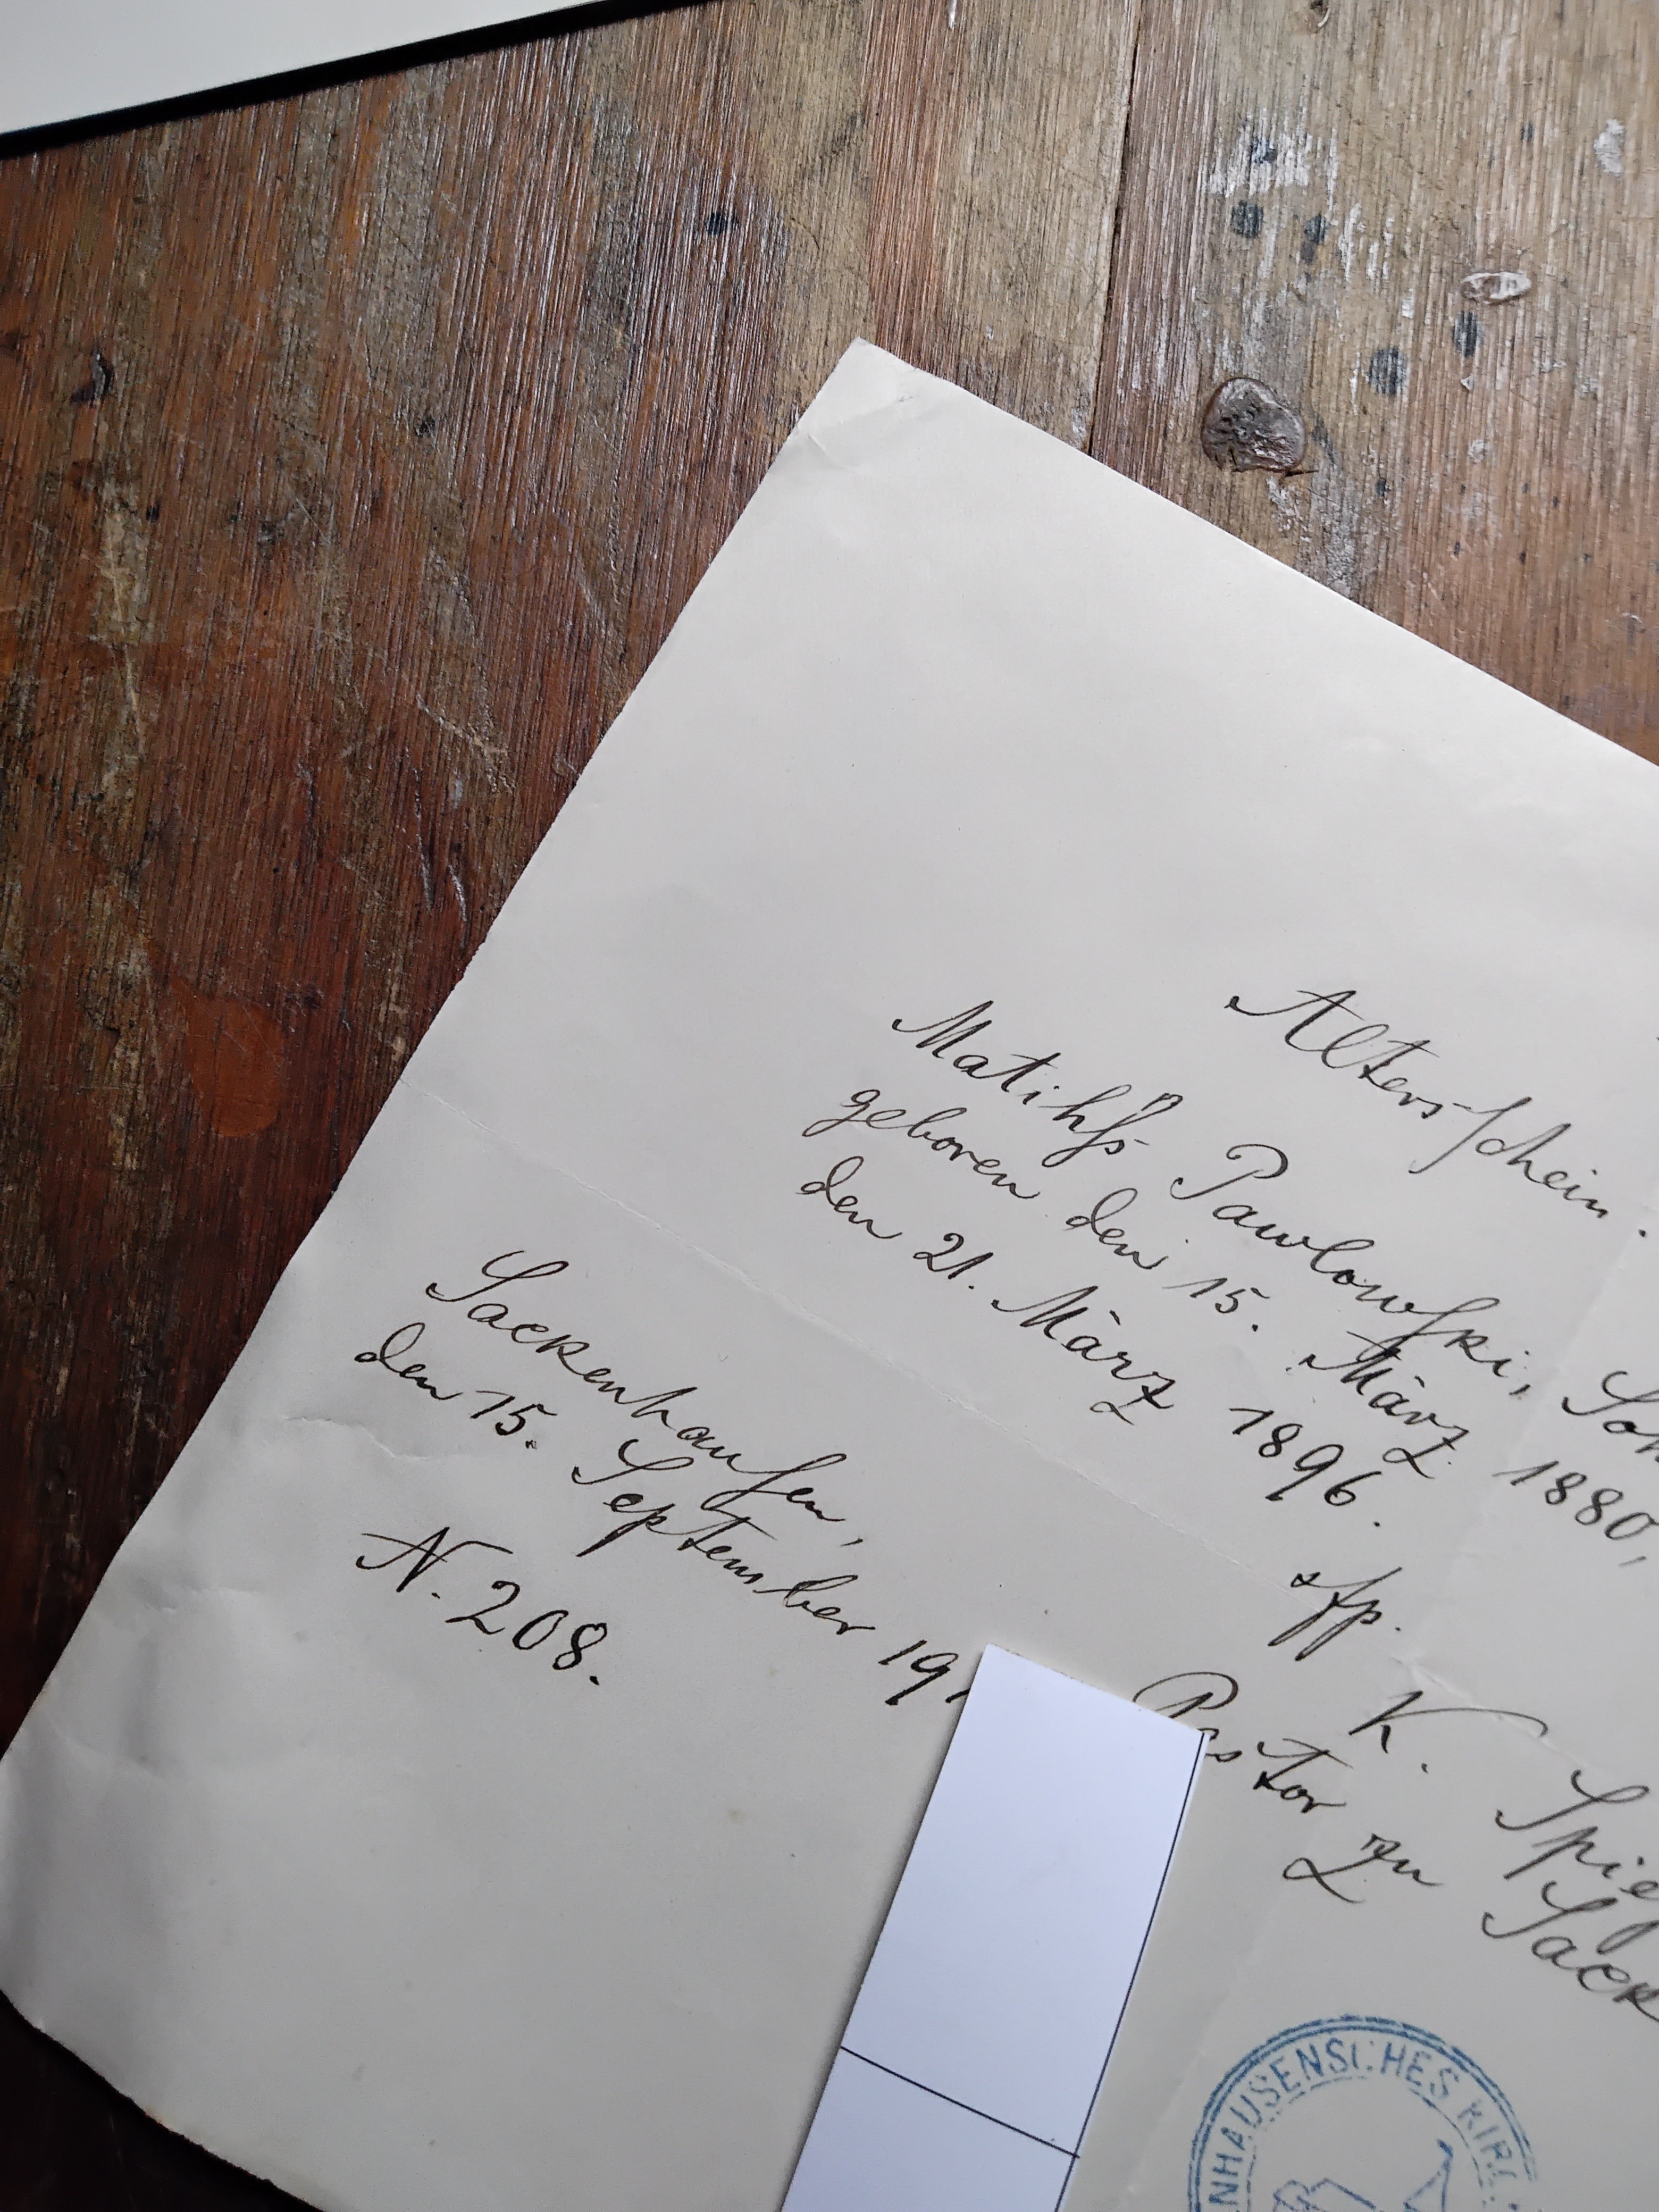 Altersschein.
Matihss Pawlowski, Soh
geboren den 15. März 1880,
den 21. März 1896.
Sackenhausen,
den 15. September 191
N. 208.
K. Spie
Pastor zu Sack
NHAUSENSCHES KIRC